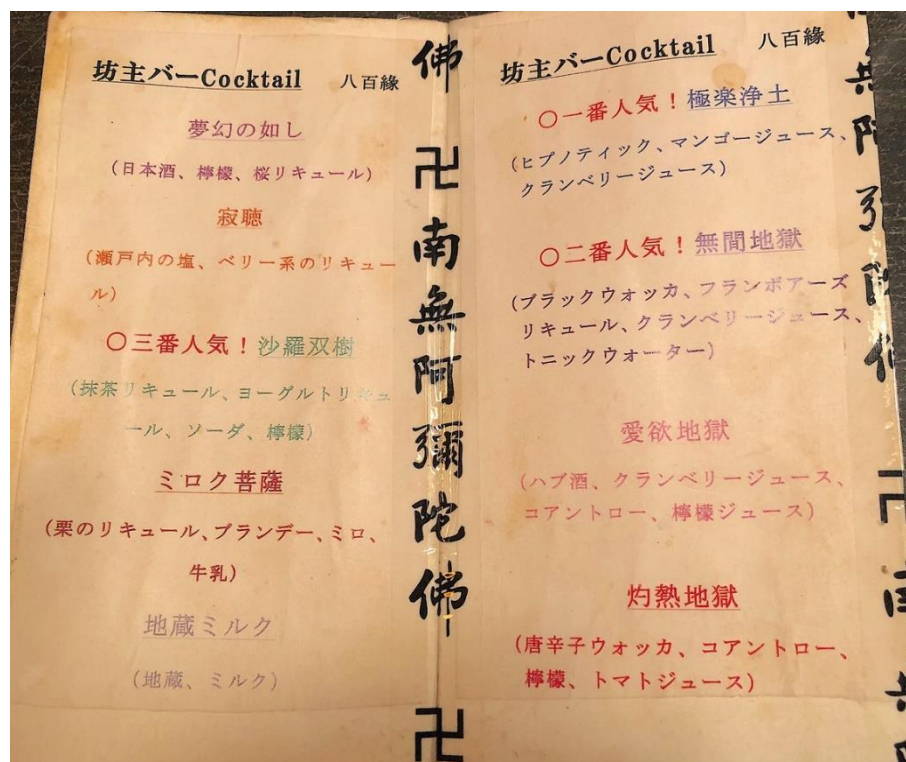 坊主バーCocktail 八百縁
夢幻の如し
(日本酒、檸檬、桜リキュール)
寂聴
(瀬戸内の塩、ベリー系のリキュー
ル)
〇三番人気！沙羅双樹
(抹茶リキュール、ヨーグルトリキュ
ール、ソーダ、檸檬)
ミロク菩薩
(栗のリキュール、ブランデー、ミロ、
牛乳)
地蔵ミルク
(地蔵、ミルク)
佛
卍
南無阿彌陀佛
卍
坊主バーCocktail 八百縁
〇一番人気！極楽浄土
(ヒプノティック、マンゴージュース、
クランベリージュース)
〇二番人気！無間地獄
(ブラックウォッカ、フランボアーズ
リキュール、クランベリージュース、
トニックウォーター)
愛欲地獄
(ハブ酒、クランベリージュース、
コアントロー、檸檬ジュース)
灼熱地獄
(唐辛子ウォッカ、コアントロー、
檸檬、トマトジュース)